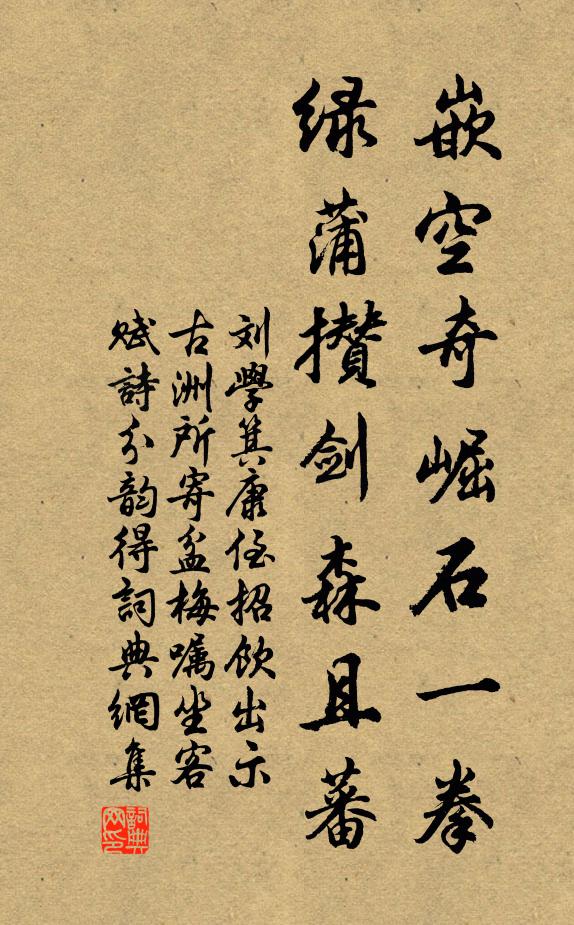 嵌空奇崛石一拳
绿蒲攢剑森且蕃
刘學箕康侄招飲出示
古洲所寄盆梅嘱坐客
赋詩分韵得詞典網集
詞典网印